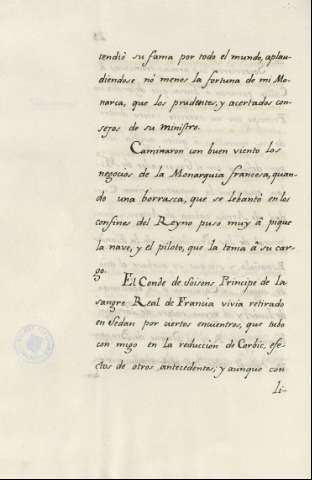 tendió su fama por todo el mundo, aplau-
diendose no menos la fortuna de mi Mo-
narca, que los prudentes, y acertados con-
sejos de su ministro.
Caminaron con buen viento los
negocios de la Monarquia francesa, quan-
do una borrasca, que se lebantó en los
confines del Reyno puso muy â pique
la nave, y el piloto, que la tenia â su car-
go.
El Conde de Soisens Principe de la
sangre Real de Francia vivia retirado
en Sedan por ciertos encuentros, que tubo
con migo en la reducción de Corbic, efe-
ctos de otros antecedentes, y aunque con
li-